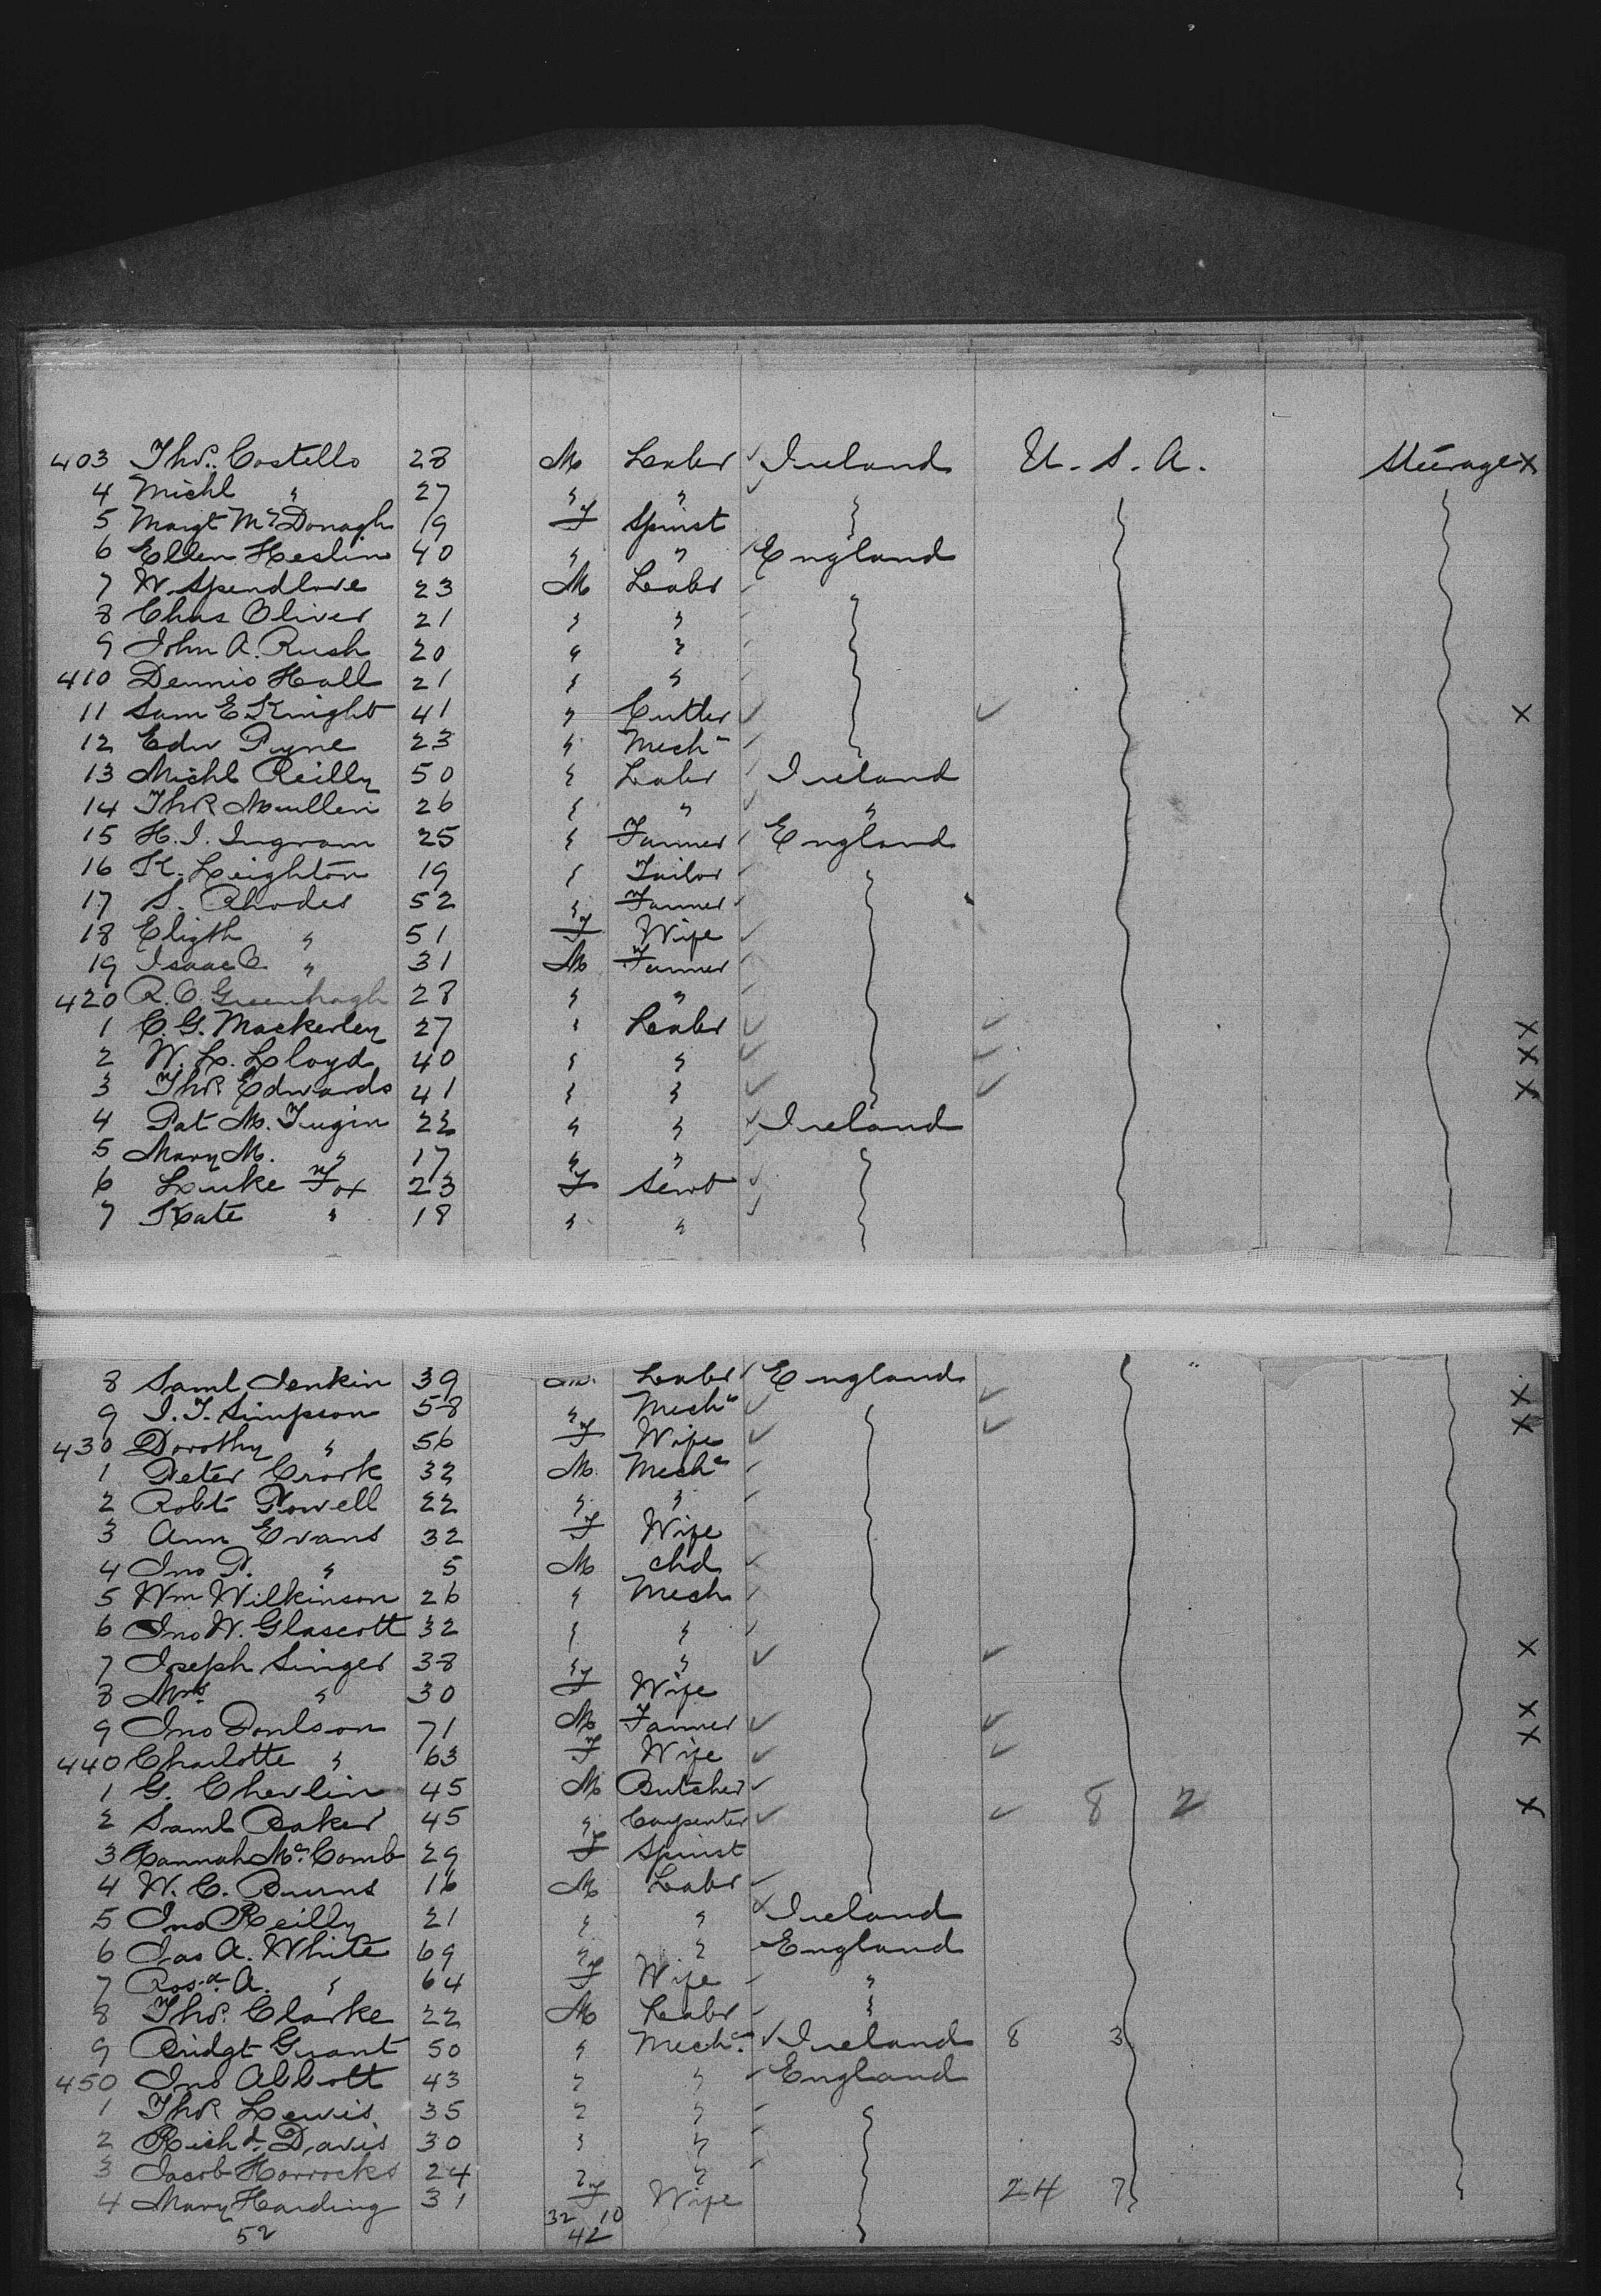 403 Thos. Costello 28 M Labr ✓ Ireland U. S. A. Steerage X
4 Michl " 27 " " ✓
5 Margt McDonagh 19 F Spinst
6 Ellen Heslin 40 " " ✓ England
7 W. Spendlove 23 M Labr ✓
8 Chas Oliver 21 " "
9 John A. Rush 20 " "
410 Dennis Hall 21 " "
11 Sam E Knight 41 " Cutler ✓ ✓ X
12 Edw Pyne 23 " Mech ✓
13 Michl Reilly 50 " Labr ✓ Ireland
14 Thos Mullen 26 " " ✓ "
15 H. J. Ingram 25 " Farmer ✓ England
16 K. Leighton 19 " Tailor ✓
17 S. Rhodes 52 " Farmer ✓
18 Elizth " 51 F Wife ✓
19 Isaac C " 31 M Farmer ✓
420 R. O. Greenhagh 28 " " ✓
1 C. G. Mackerley 27 " Labr ✓ ✓ X
2 W. L. Lloyd 40 " " ✓ ✓ X
3 Thos Edwards 41 " " ✓ ✓ X
4 Pat M. 22 " " ✓ Ireland
5 Mary M. " 17 " " ✓
6 Luke Fox 23 F Servt ✓
7 Kate " 18 " " ✓
8 Saml Jenkin 39 M. Labr ✓ England
9 J. T. Simpson 58 " Mech ✓ ✓ X
430 Dorothy " 56 F Wife ✓ ✓ X
1 Peter Crook 32 M. Mech ✓
2 Robt Powell 22 " " ✓
3 Ann Evans 32 F Wife
4 Jno P. " 5 M chd ✓
5 Wm Wilkinson 26 " Mech ✓
6 Jno W. Glascott 32 " " ✓
7 Joseph Singer 38 " " ✓ ✓ X
8 Mrs " 30 F Wife
9 Jno Poulson 71 M Farmer ✓ ✓ X
440 Charlotte " 63 F Wife ✓ ✓ X
1 G. Cherlin 45 M Butcher ✓ 8 2
2 Saml Baker 45 " Carpenter ✓ ✓ X
3 Hannah McComb 29 F Spinst
4 W. C. Burns 16 M Labr ✓
5 Jno Reilly 21 " " ✓ Ireland
6 Jas A. White 69 " " England
7 Rosa A. " 64 F Wife ✓ "
8 Thos. Clarke 22 M Labr ✓ "
9 Bridgt Grant 50 " Mech. ✓ Ireland 8 3
450 Jno Abbott 43 " " ✓ England
1 Thos Lewis 35 " " ✓
2 Richd. Davis 30 " " ✓
3 Jacob Horrocks 24 " " ✓
4 Mary Harding 31 F Wife 24 7
52 32 10
42